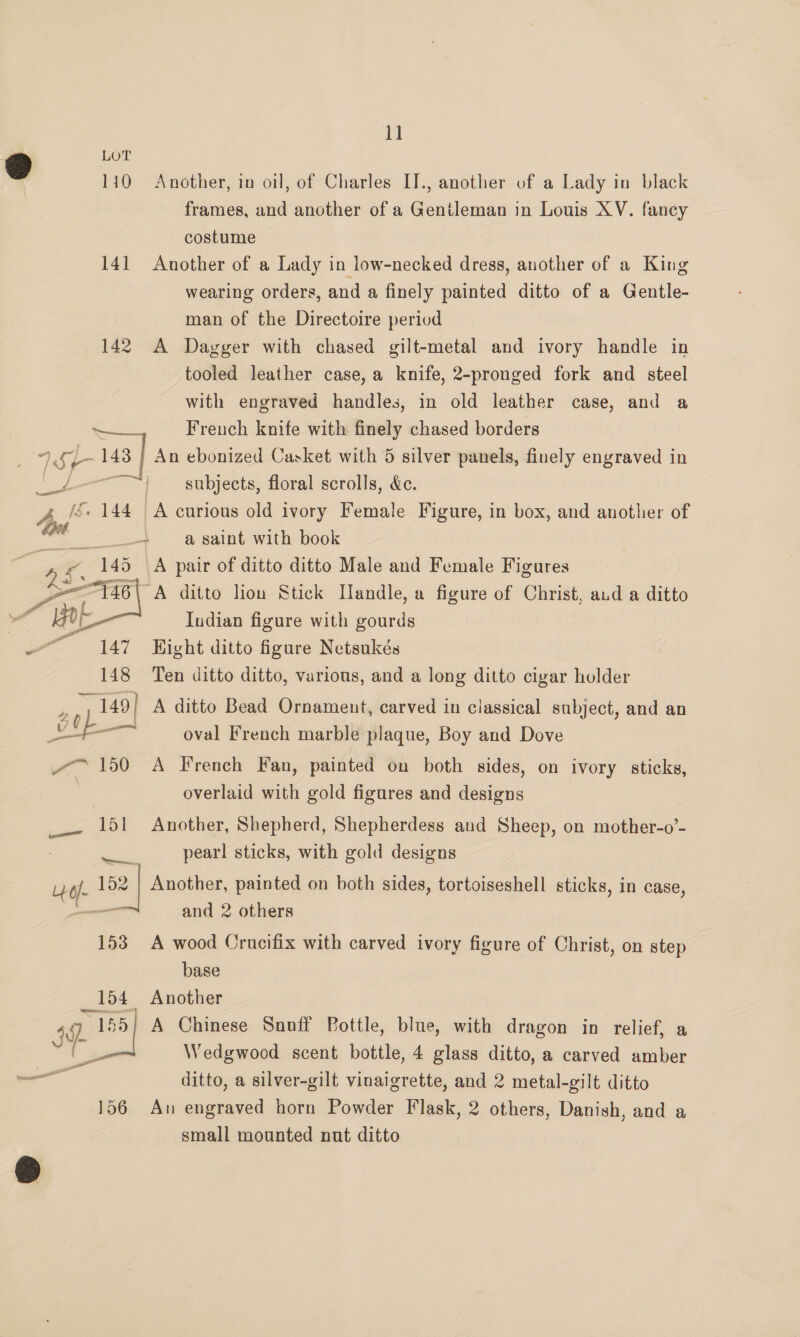 11
LOT
140 Another, in oil, of Charles II., another of a Lady in black
frames, and another of a Gentleman in Louis XV. fancy
costume
141 Another of a Lady in low-necked dress, another of a King
wearing orders, and a finely painted ditto of a Gentle-
man of the Directoire period
142 A Dagger with chased gilt-metal and ivory handle in
tooled leather case, a knife, 2-pronged fork and steel
with engraved handles, in old leather case, and a
French knife with finely chased borders
143 An ebonized Casket with 5 silver panels, finely engraved in
subjects, floral scrolls, &c.
144 A curious old ivory Female Figure, in box, and another of
a saint with book
145 A pair of ditto ditto Male and Female Figures
146 A ditto lion Stick Handle, a figure of Christ, and a ditto
Indian figure with gourds
147 Eight ditto figure Netsukés
148 Ten ditto ditto, various, and a long ditto cigar holder
149 A ditto Bead Ornament, carved in classical subject, and an
oval French marble plaque, Boy and Dove
150 A French Fan, painted on both sides, on ivory sticks,
overlaid with gold figures and designs
151 Another, Shepherd, Shepherdess and Sheep, on mother-o'-
pearl sticks, with gold designs
152 Another, painted on both sides, tortoiseshell sticks, in case,
and 2 others
153 A wood Crucifix with carved ivory figure of Christ, on step
base
154 Another
155 A Chinese Snuff Bottle, blue, with dragon in relief, a
Wedgwood scent bottle, 4 glass ditto, a carved amber
ditto, a silver-gilt vinaigrette, and 2 metal-gilt ditto
156 An engraved horn Powder Flask, 2 others, Danish, and a
small mounted nut ditto